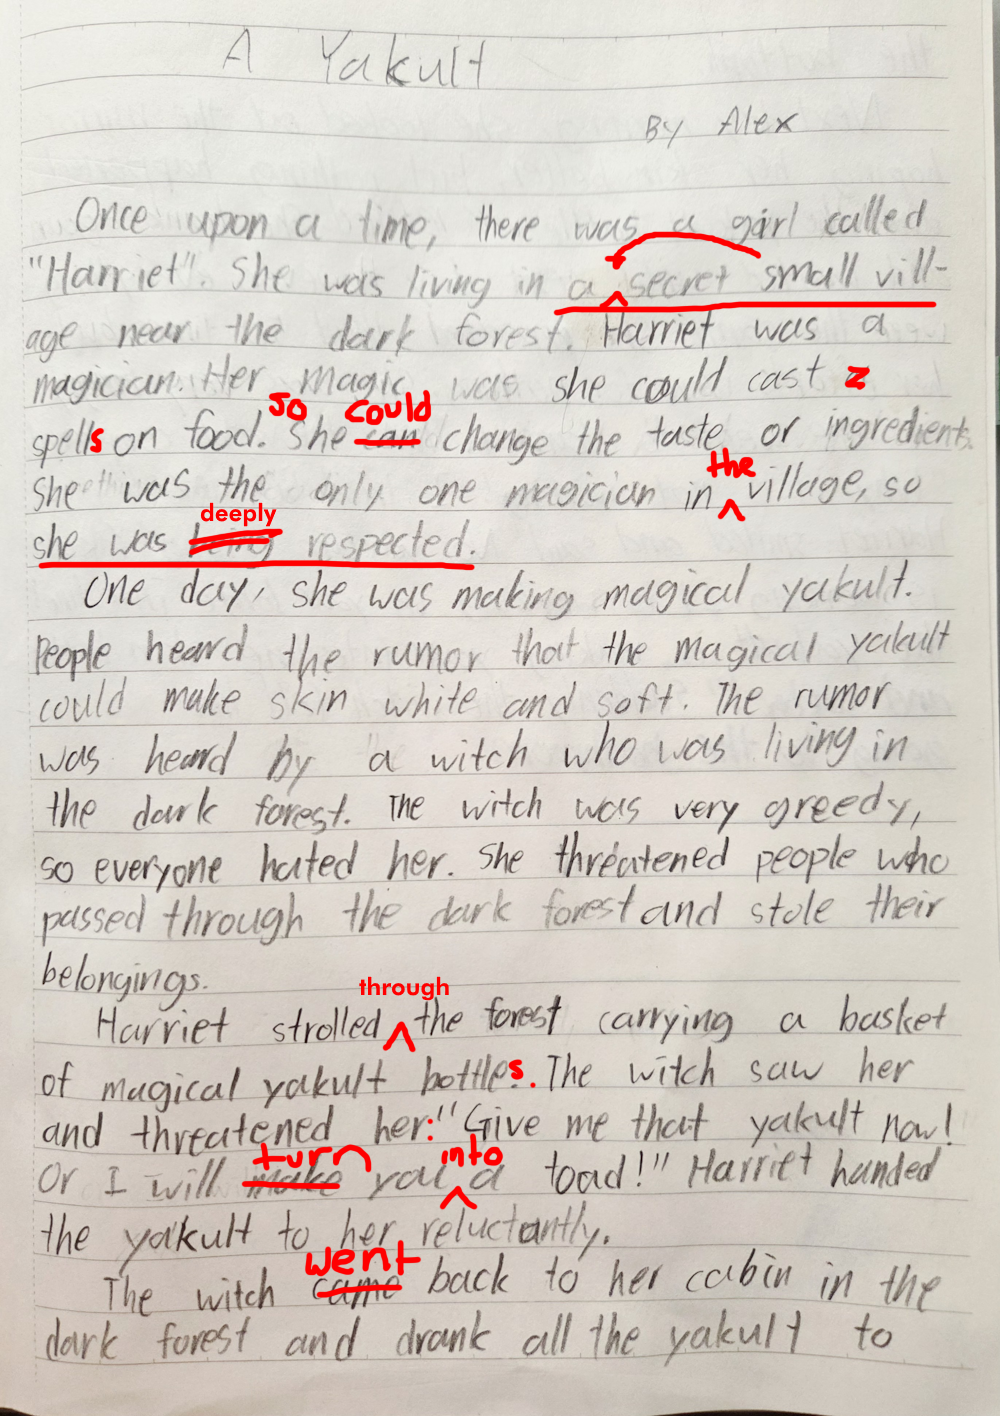 A Yakult
By Alex
Once upon a time, there was a girl called
"Harriet". She was living in a secret small vill-
age near the dark forest. Harriet was a
magician. Her magic was she could cast z
so could
spells on food. She can change the taste or ingredients.
the
She was the only one magician in village, so
deeply
she was being respected.
One day, she was making magical yakult.
People heard the rumor that the magical yakult
could make skin white and soft. The rumor
was heard by a witch who was living in
the dark forest. The witch was very greedy,
so everyone hated her. She threatened people who
passed through the dark forest and stole their
belongings.
through
Harriet strolled the forest carrying a basket
of magical yakult bottles. The witch saw her
and threatened her: "Give me that yakult now!
turn into
Or I will make you a toad!" Harriet handed
the yakult to her reluctantly.
went
The witch came back to her cabin in the
dark forest and drank all the yakult to